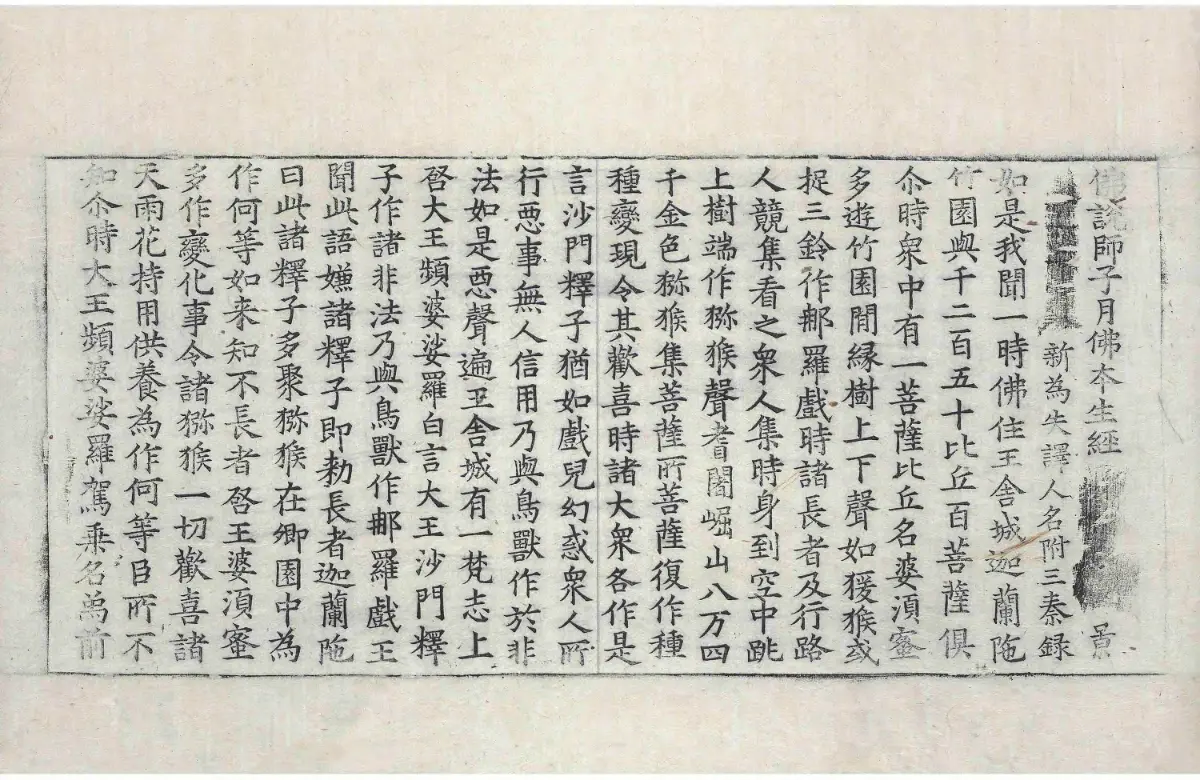 佛說師子月佛本生經 景
新為失譯人名附三秦録
如是我聞一時佛住王舍城迦蘭陁
竹園與千二百五十比丘百菩薩俱
尒時衆中有一菩薩比丘名婆湏蜜
多遊竹園閒縁樹上下聲如猨猴或
捉三鈴作郍羅戲時諸長者及行路
人競集看之衆人集時身到空中跳
上樹端作猕猴聲耆闍崛山八万四
千金色猕猴集菩薩所菩薩復作種
種變現令其歡喜時諸大衆各作是
言沙門釋子猶如戲兒幻惑衆人所
行惡事無人信用乃與鳥獸作於非
法如是惡聲遍王舍城有一梵志上
啓大王頻婆娑羅白言大王沙門釋
子作諸非法乃與鳥獸作郍羅戲王
聞此語嫌諸釋子即勑長者迦蘭陁
曰此諸釋子多聚猕猴在卿園中為
作何等如来知不長者啓王婆湏蜜
多作變化事令諸猕猴一切歡喜諸
天雨花持用供養為作何等臣所不
知尒時大王頻婆娑羅駕乗名爲前